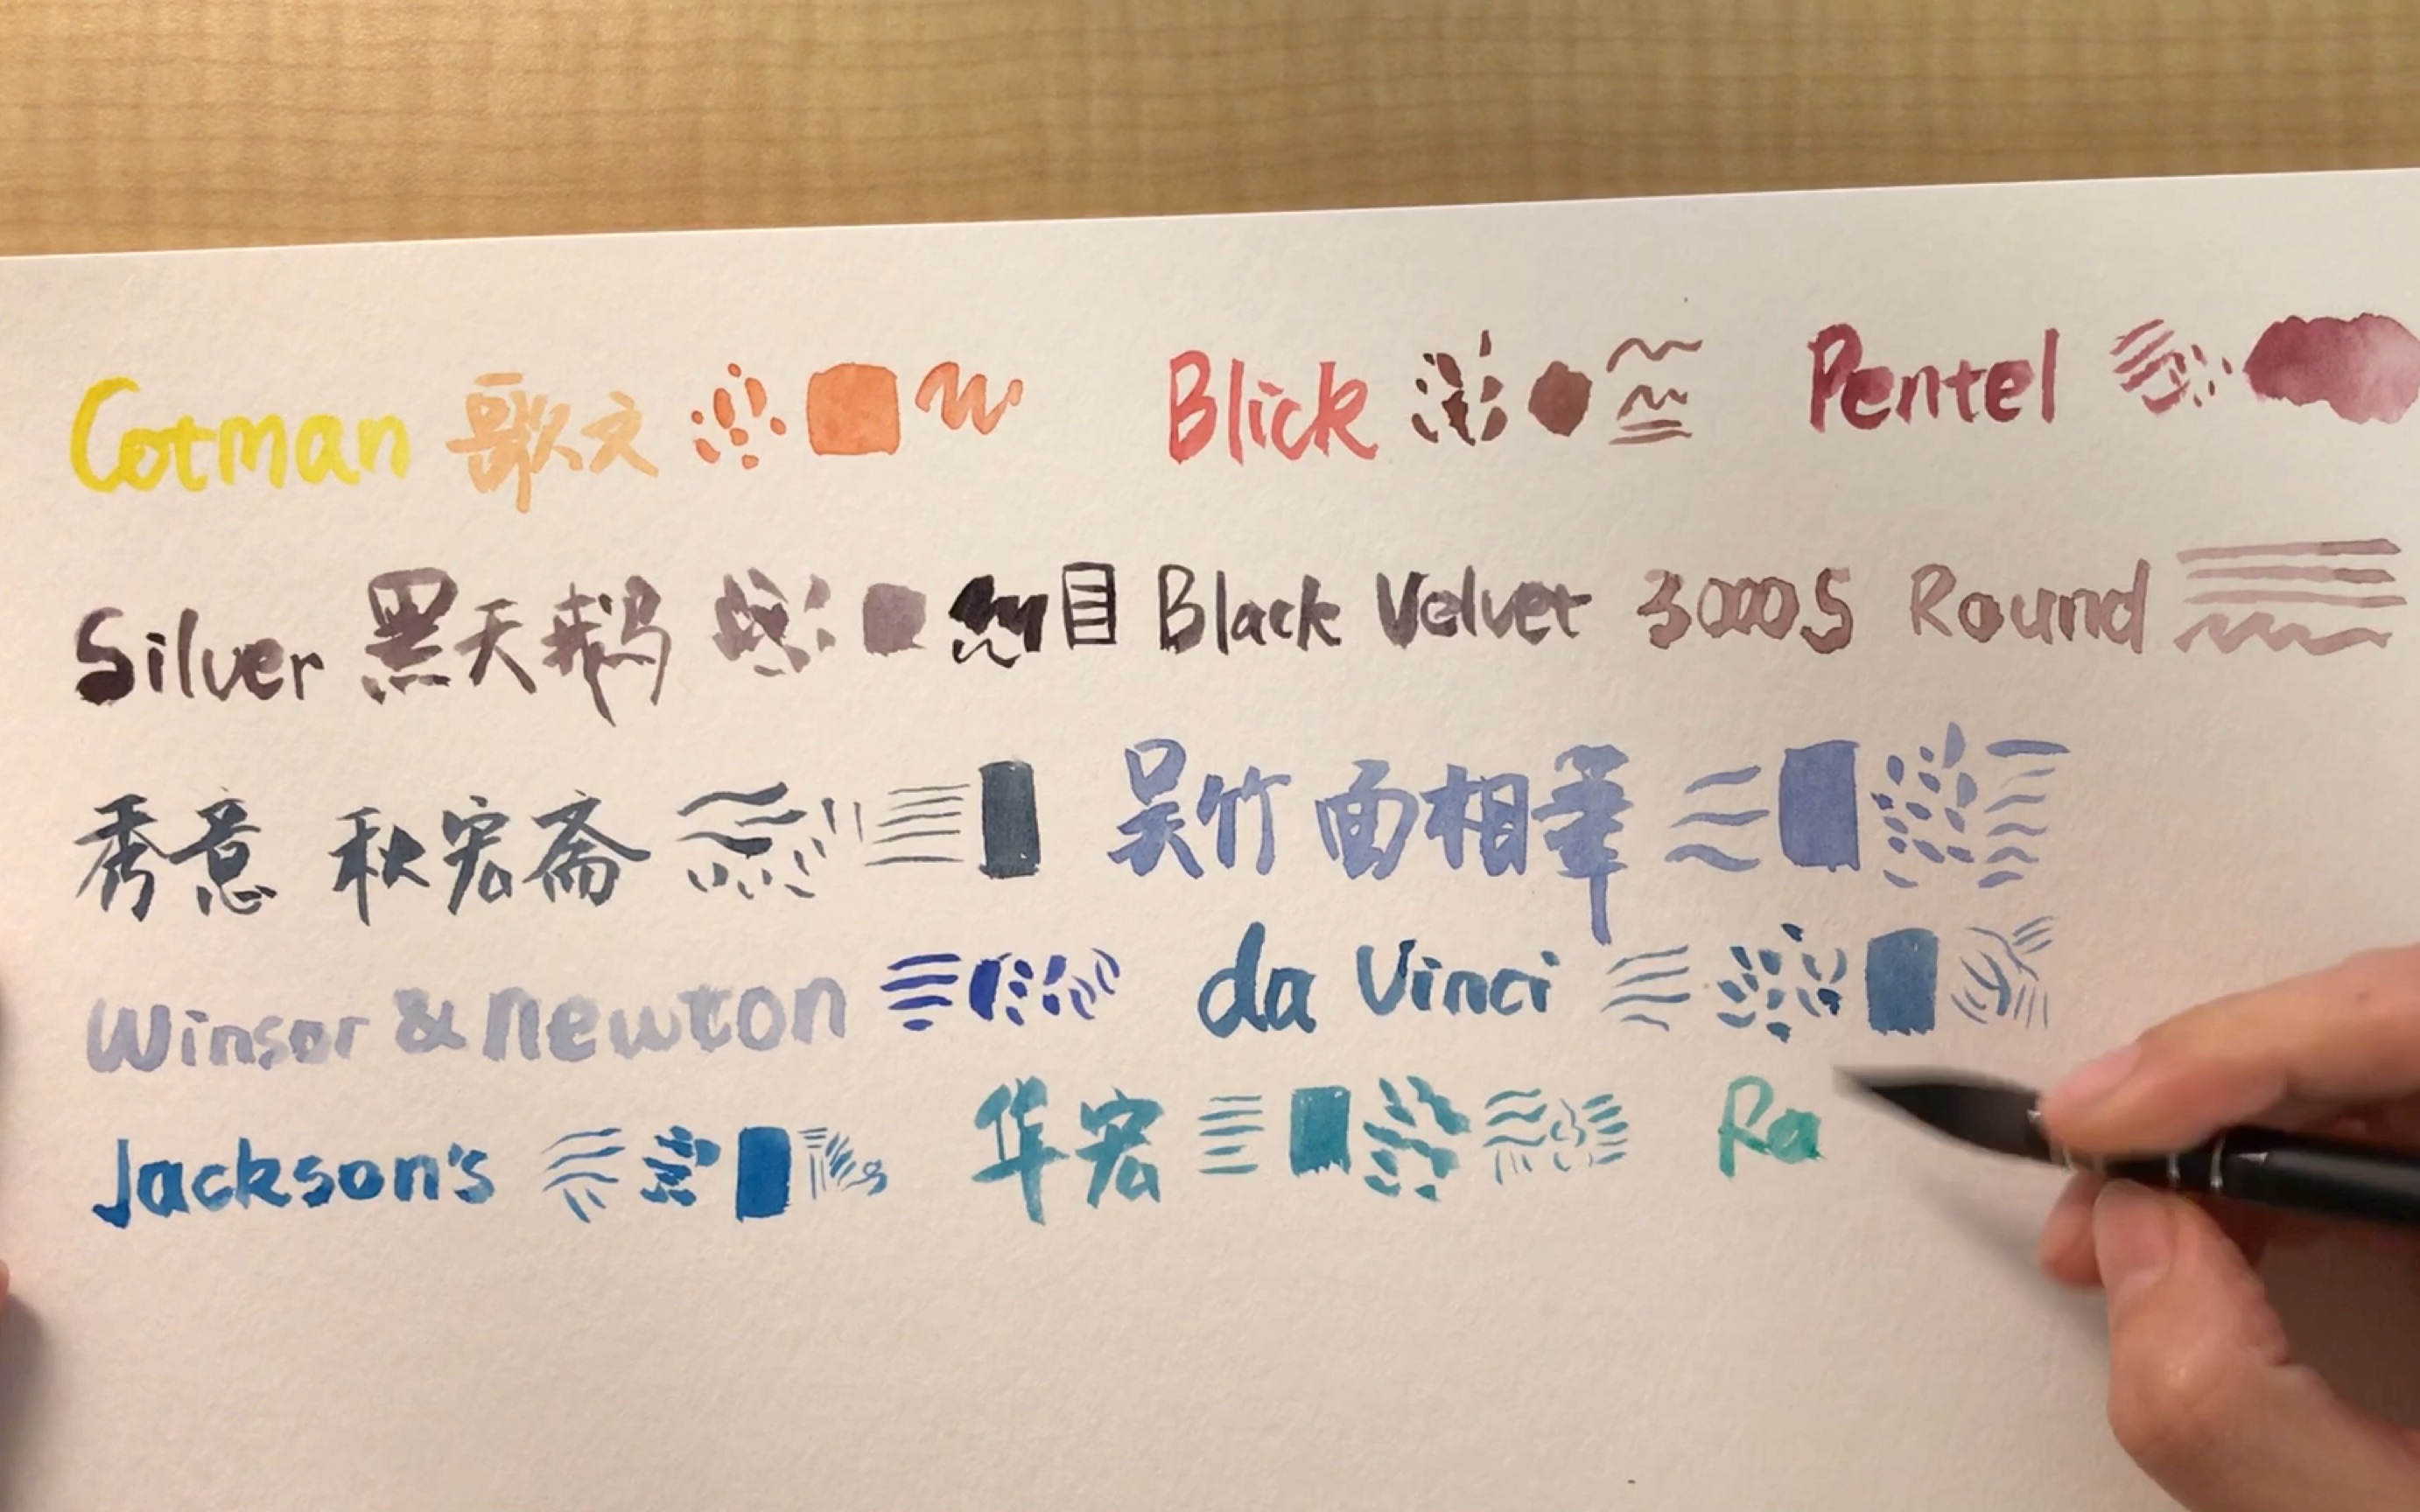 Cotman 歌文 Blick Pentel
Silver 黑天鹅 Black Velvet 3000S Round
秀意 秋宏斋 吴竹 面相筆
Winsor & newton da Vinci
Jackson's 华宏 Ra